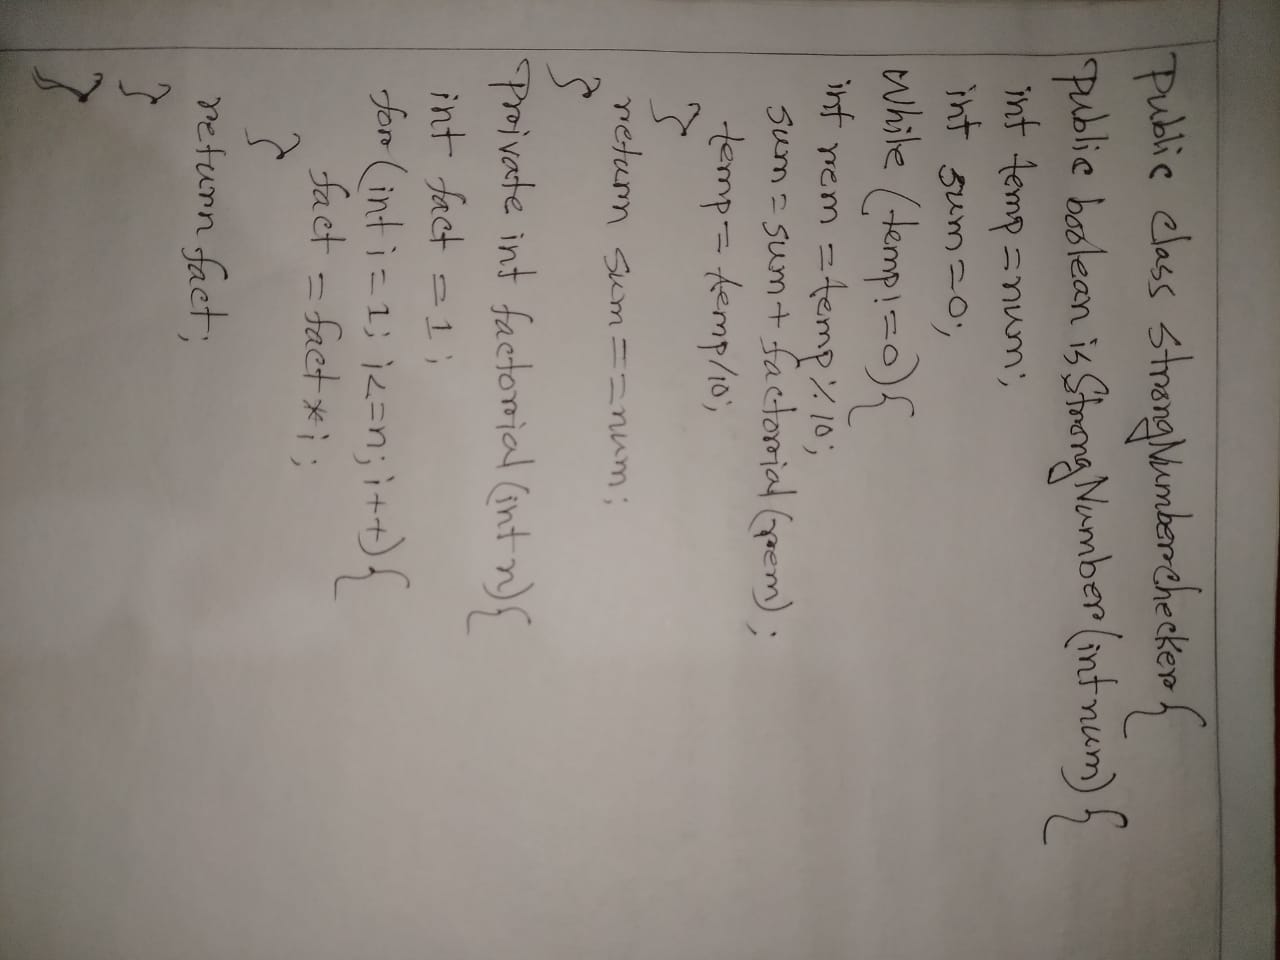 public class StrongNumberChecker{
public boolean isStrongNumber(int num){
int temp=num;
int sum=0;
while (temp!=0){
int rem=temp%10;
sum=sum+factorial(rem);
temp=temp/10;
}
return sum==num;
}
private int factorial(int n){
int fact=1;
for(int i=1; i<=n; i++){
fact=fact*i;
}
return fact;
}
}